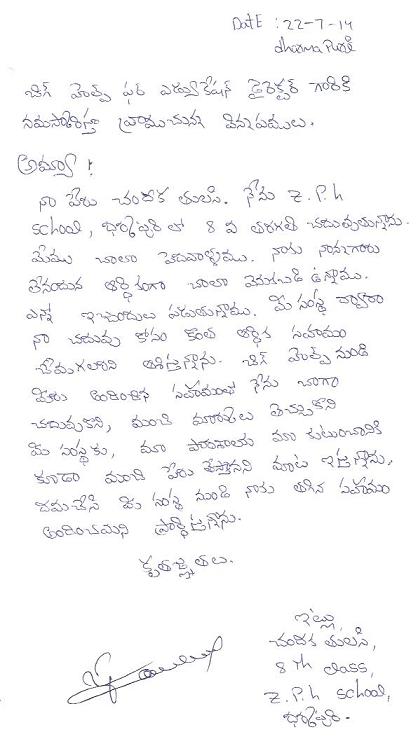 Date : 22-7-14
dharmapuri
బిగ్ హెల్ప్ ఫర్ ఎడ్యుకేషన్ డైరెక్టర్ గారికి
నమస్కరిస్తూ వ్రాయుచున్న విన్నపములు.
అమ్మా !
నా పేరు చందిక తులసి. నేను Z.P.h
school, లో 8 వ తరగతి చదువుతున్నాను.
మేము చాలా పేదవాళ్ళము. నాకు నాన్నగారు
లేనందున ఆర్థికంగా చాలా వెనుకబడి ఉన్నాము.
ఎన్నో ఇబ్బందులు పడుతున్నాము. మీ సంస్థ ద్వారా
నా చదువు కోసం కొంత ఆర్థిక సహాయం
చేయగలరని ఆశిస్తున్నాను. బిగ్ హెల్ప్ నుండి
మీరు అందించిన సహాయంతో నేను బాగా
చదువుకొని, మంచి మార్కులు తెచ్చుకొని
మీ సంస్థకు, మా పాఠశాలకు మా కుటుంబానికి
కూడా మంచి పేరు తెస్తానని మాట ఇస్తున్నాను.
దయచేసి మీ సంస్థ నుండి నాకు తగిన సహాయం
అందించమని ప్రార్థిస్తున్నాను.
కృతజ్ఞతలు.
ఇట్లు
చందిక తులసి,
8 Th class,
Z.P.h school,